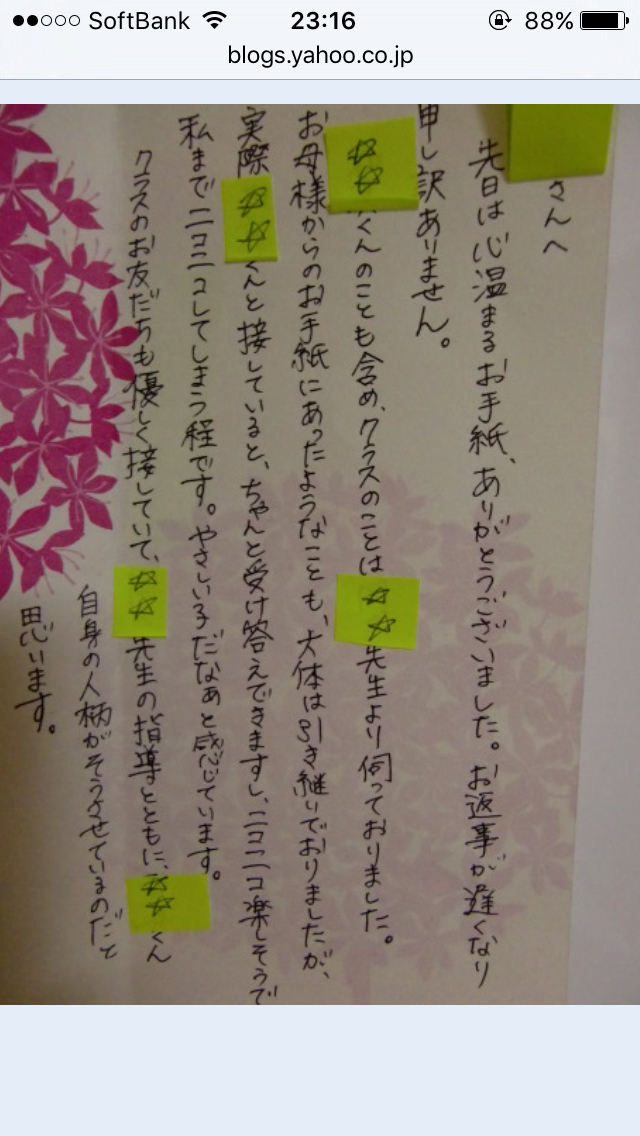 SoftBank 23:16 88%
blogs.yahoo.co.jp
さんへ
先日は心温まるお手紙、ありがとうございました。お返事が遅くなり
申し訳ありません。
☆☆くんのことも含め、クラスのことは☆☆先生より伺っておりました。
お母様からのお手紙にあったようなことも、大体は引き継いでおりましたが、
実際☆☆くんと接していると、ちゃんと受け答えできますし、ニコニコ楽しそうで
私までニコニコしてしまう程です。やさしい子だなぁと感じています。
クラスのお友だちも優しく接していて、☆☆先生の指導とともに、☆☆くん
自身の人柄がそうさせているのだと
思います。